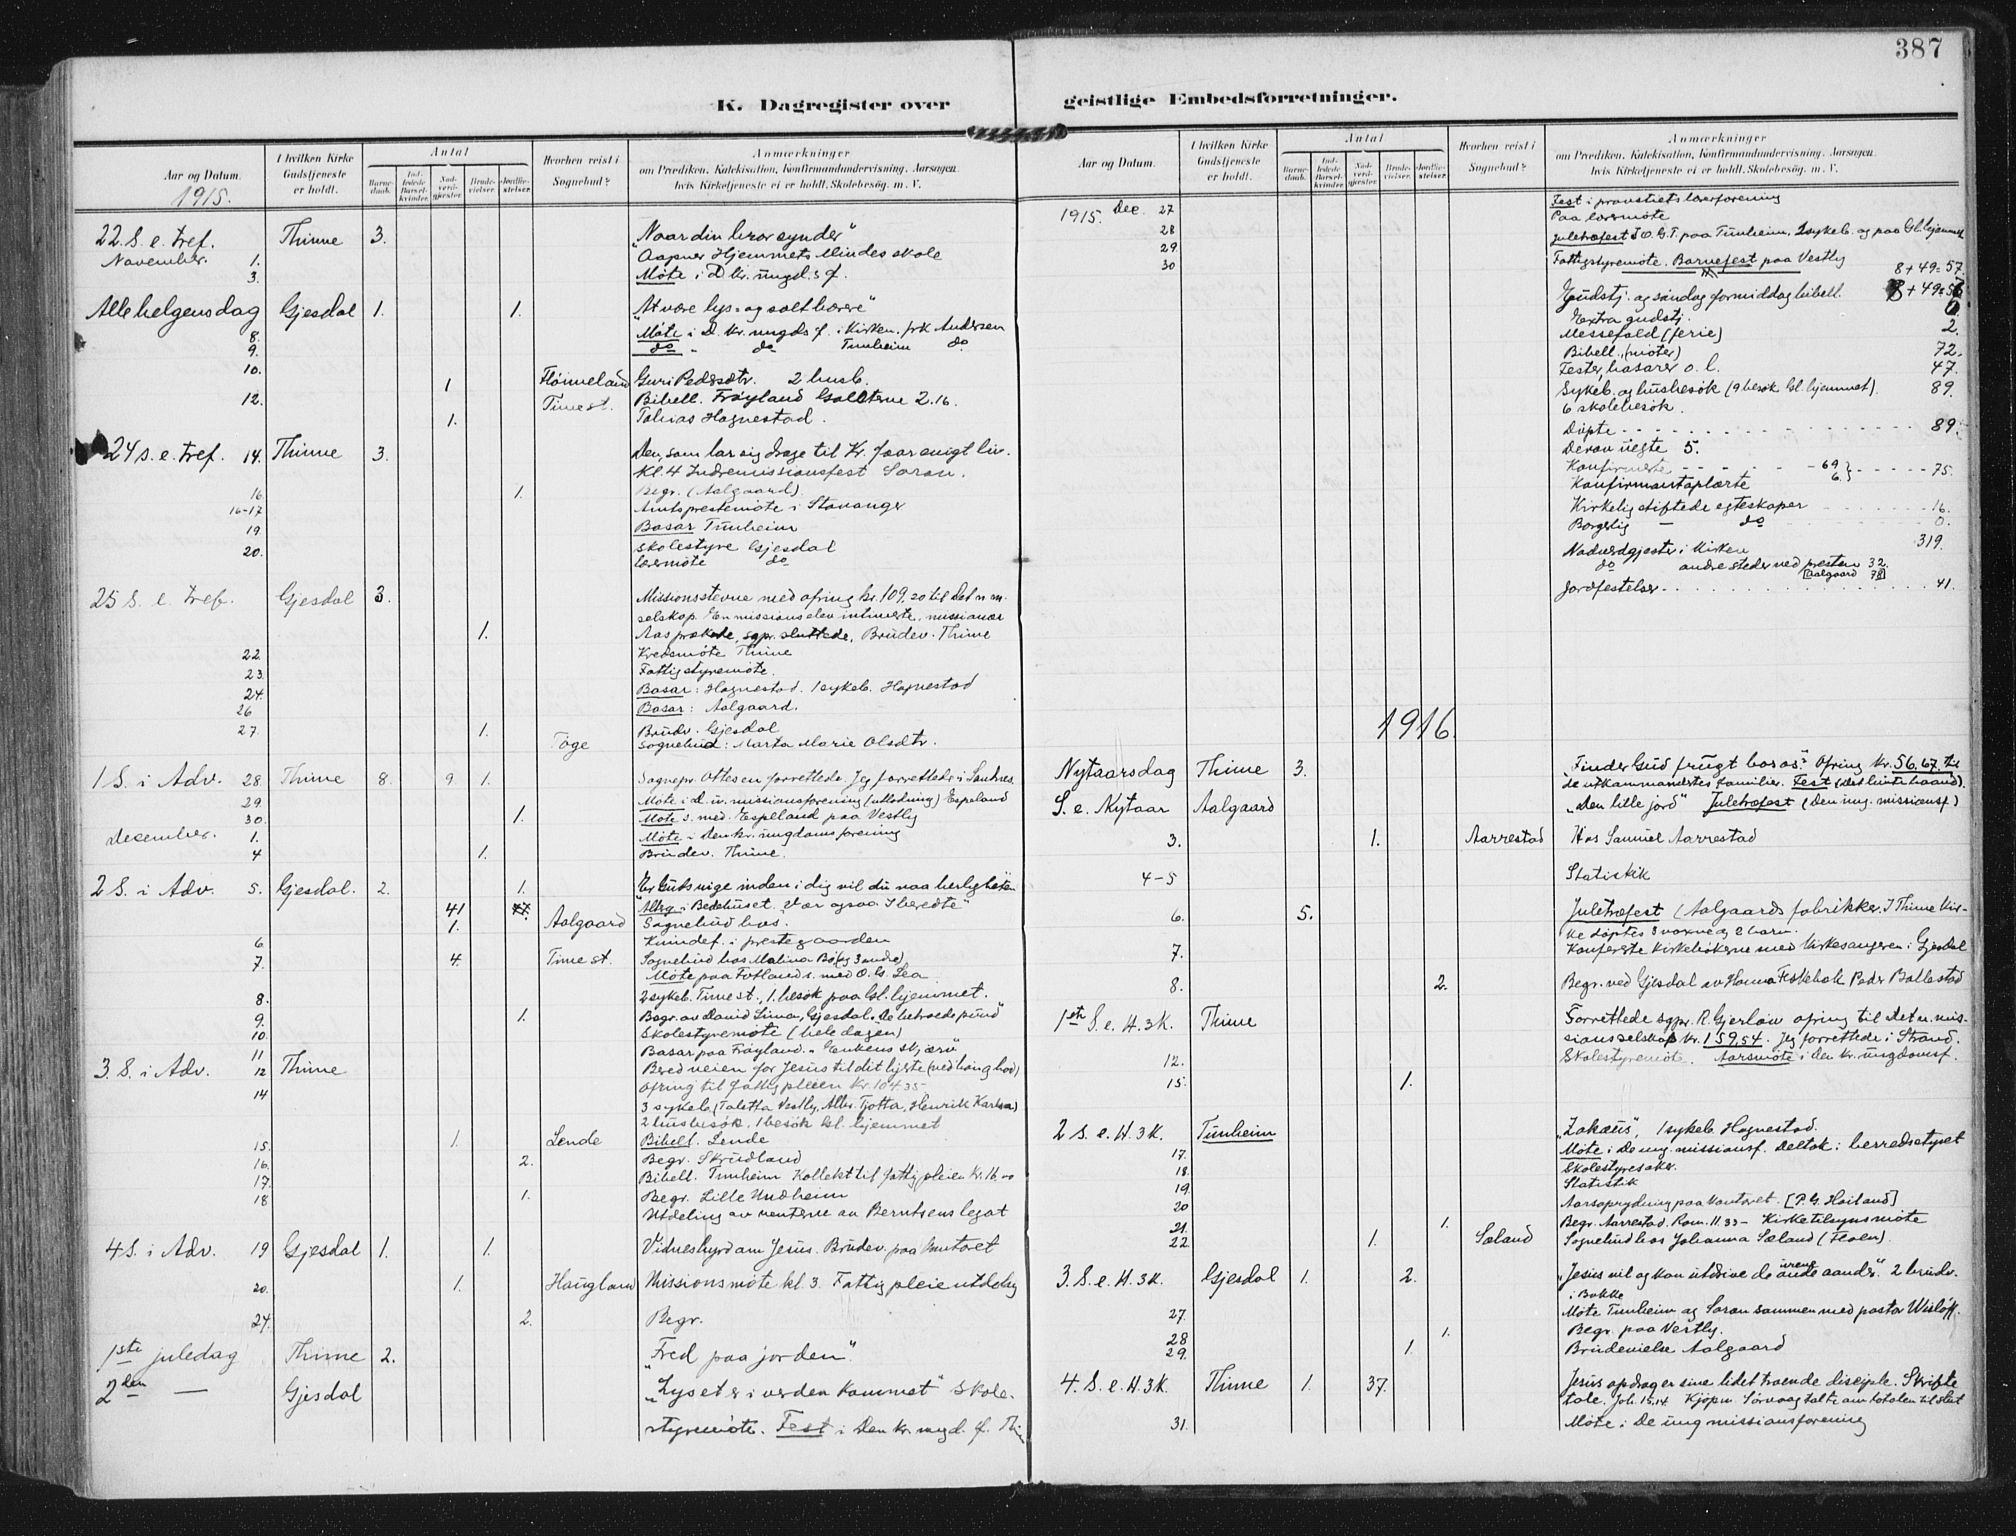 387
K. Dagregister over geistlige Embedsforretninger.
Aar og Datum.
I hvilken Kirke Gudstjeneste er holdt.
Antal
Barnedaab.
Indledede Barselkvinder.
Nadverdgjester.
Brudevielser.
Jordfæstelser.
Hvorhen reist i Sognebud?
Anmærkninger
om Prædiken, Katekisation, Konfirmandundervisning, Aarsagen
hvis Kirketjeneste ei er holdt, Skolebesøg, m. V.
1915.
22. S. e. Tref. Thime 3. "Naar din bror synder"
November. 1. Aapner Hjemmets Mindes skole
3. Møte i D. kr. ungd.s f.
Alle helgensdag Gjesdal 1. 1. "At være lys- og saltbærere"
8. Møte i D. kr. ungds f. i Kirken. frk Andersen
9. do " do Tunheim do
10. 1 Guri Pedersdtr. 2 husb.
12. Time st. Bibell. Frøyland Gallterne 2.16.
1. Tobias Hognestad.
24 s. e. Tref. 14. Thime 3. Den, som lar sig drage til Kr. faar evigt liv.
Kl. 4 Indremissionsfest Saron.
16. 1. Begr. (Aalgaard)
16-17 Amtsprestemøte i Stavanger
19. Basar Tunheim
20. Skolestyre Gjesdal
lærermøte do
25 S. e. Tref. Gjesdal 3. Missionsstevne med ofring kr. 109,20 til Det n. m.
selskap. En missionselev intimerte, missionær
1. Aas prækede, sgpr. sluttede, Brudev. Thime
22. Kredsmøte Thime
23. Fattigstyremøte.
24. Basar: Hognestad. 1 sykeb. Hognestad
26 Basar: Aalgaard.
27. 1. Brudv. Gjesdal
Sognebud: Marta Marie Olsdtr.
1 S. i Adv. 28. Thime 8. 9. 1. Sognepr. Ottesen forrettede. Jeg forrettede i Sandnes.
29. Møte i d. kv. missionsforening (utlodning) Espeland
30. 1. Møte s. med Espeland paa Vestly
December. 1. Møte i Den kr. ungdomsforening
4 1. Brudev. Thime.
2 S. i Adv. 5. Gjesdal. 2. 1. "Er Guds rige inden i dig vil du naa herligheten"
41 Altrg. i Bedehuset. "Vær ogsaa I beredte"
1. Aalgaard Sognebud hos
6. Kvindef. i prestegaarden
7. 4. Time st. Sognebud hos Malina Bø (og 3 andre)
Møte paa Fotland s. med O. G. Lea
8. 2 sykeb. Time st., 1. besøk paa Gl. hjemmet.
9. 1. Begr. av David Lima, Gjesdal. "De betroede pund"
10. Skolestyremøte (hele dagen)
11 Basar paa Frøyland. "Enkens skjærv"
3. S. i Adv. 12 Thime Bered veien for Jesus til dit hjerte (ved bøn og bod)
14 Ofring til fattigpleien kr. 104 35
3 sykeb (Taletta Vestly, Alb. Tjotta, Henrik Karlsen)
2 husbesøk, 1 besøk Gl. hjemmet
15. 1. Lende Bibell. Lende
16. 2. Begr. Skrudland
17. Bibell. Tunheim Kollekt til fattigpleien Kr. 16.00
18 1. Begr. Lille Undheim
Utdeling av renterne av Berntsens legat
4 S. i Adv. 19 Gjesdal 1. 1. Vidnesbyrd om Jesus. Brudev. paa kontoret
20. 1. Haugland Missionsmøte kl. 3. Fattigpleie utdeling
24. 2. Begr.
1ste juledag Thime 2. "Fred paa jorden".
2den — Gjesdal "Lyset er i verden kommet" Skole-
styremøte. Fest i Den kr. ungd. f. Thi
1915. Dec. 27 Fest i provstiets lærerforening
28 Paa lærermøte
29 Juletræfest I. O. G. T. paa Tunheim. 2 sykeb. og paa Gl. hjemmet
30 Fattigstyremøte. Barnefest paa Vestly
8 + 49 = 57.
Gudstj. og søndag formiddag bibell.
Extra gudstj. 0
Messefald (ferie) 2.
Bibell. (møter) 72.
Fester, basarer o. l. 47.
Sykeb. og husbesøk (9 besøk Gl. hjemmet). 89.
6 skolebesøk.
Døpte 89.
Derav uegte 5.
Konfirmerte 69 } 75.
Konfirmantoplærte 6.
Kirkelig stiftede egteskaper 16.
Borgerlig — do 0.
Nadverdgjester i Kirken 319.
do andre steder ved presten 32.
[Aalgaard 78]
Jordfestelser 41.
1916.
Nytaarsdag Thime 3. "Finder Gud frugt hos os?" Ofring Kr. 56,67 til
de utkommandertes familier. Fest (det hvite baand).
S. e. Nytaar Aalgaard "Den lille jord" Juletræfest (Den ung. missionsf.)
3. 1. Aarrestad Hos Samuel Aarrestad
4-5 Statistik
6. 5. Juletræfest (Aalgaards fabrikker. I Thime Kir-
ke døptes 3 voxne og 2 barn.
7. Konfererte kirkebøkerne med kirkesangeren i Gjesdal
8. 2. Begr. ved Gjesdal av Peder Ballestad
1ste S. e. H. 3 K. Thime Forrettede sgpr. R. Gjerløw ofring til Det n. mis-
sionsselskap kr. 159,54. Jeg forrettede i Strand.
12. Skolestyremøte. Aarsmøte i Den kr. ungdomsf.
15. 1.
2 S. e. H. 3 K. Tunheim "Zakæus", 1 sykeb. Hognestad.
17. Møte i De ung. missionsf. Deltok i herredsstyret
18. Skolestyresaker.
19. Statistik
20 Aarsoprydning paa kontoret. [P. G. Høiland]
21. 1. Begr. Aarrestad. Rom. 11.33 — Kirketilsynsmøte
22. 1. Sæland Sognebud hos Johanna Sæland (Floen).
3. S. e. H. 3 K. Gjesdal 1. 2. "Jesus vil og kan utdrive de urene aander". 2 brudv.
i Bakke
27. Møte Tunheim og Saron sammen med pastor Wisløff.
28 1. Begr. paa Vestly.
29. 1. Brudevielse Aalgaard
4. S. e. H. 3 K. Thime 1. 37. Jesus opdrager sine lidet troende disciple. Skrifte
tale. Joh. 15,14 Kjøpm. Sørvaag talte om totalen til slut
31. Møte i De ung missionsforening